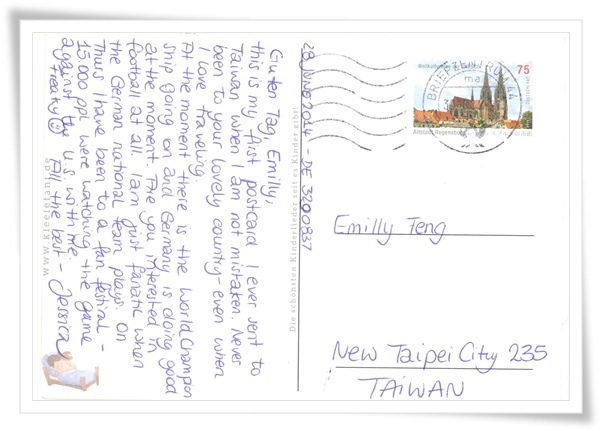 Guten Tag, Emilly,
this is my first postcard I ever sent to
Taiwan when I am not mistaken. Never
been to your lovely country - even when
I love traveling.
At the moment there is the World Champion
ship going on and Germany is doing good
at the moment. Are you interested in
football at all. I am just fanatic when
the German national team plays. On
Thurs I have been to a fan festival -
15.000 ppl were watching the game
against the U.S. with me.
Freaky ☺ All the best - Jessica
www.kleelefant.de
28 JUNE 2014 - DE 3200837
Die schönsten Kinderlieder seit es Kinder gibt!
BRIEFZENTRUM 64
75
Altstadt Regensburg
Emilly Teng
New Taipei City 235
TAIWAN